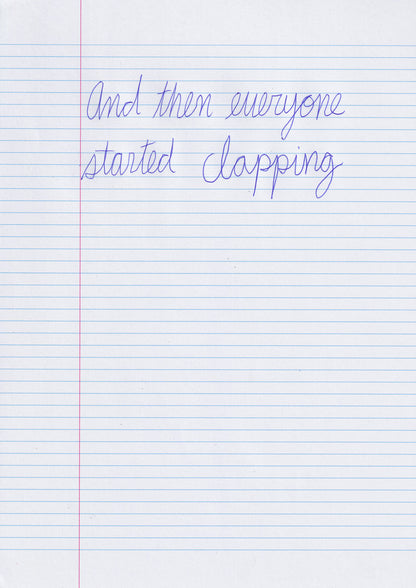 And then everyone
started clapping